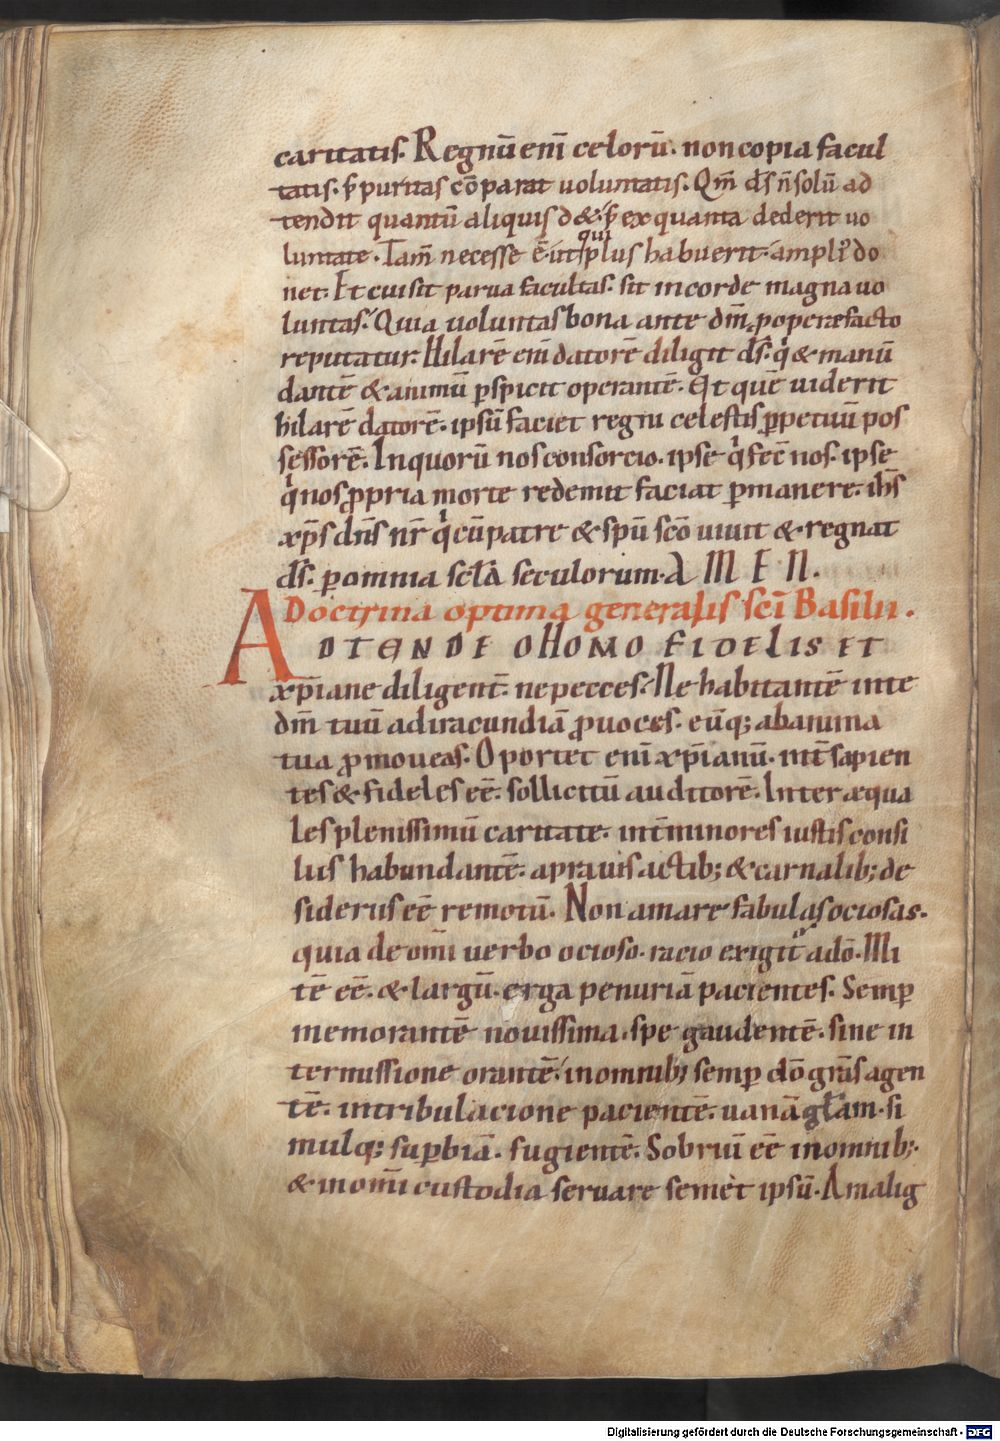 caritatis. Regnū enī celorū. non copia facul
tatis. s; puritas cōparat uoluntatis. Qm̄ ds̄ ñ solū ad
tendit quantū aliquis d&. s; ex quanta dederit uo
luntate. Tam̄ necesse ē. ut qui plus habuerit. ampli᾽ do
net. Et cui sit parua facultas. sit in corde magna uo
luntas. Quia uoluntas bona ante dm̄ ꝓ opere facto
reputatur. Hilarē enī datorē diligit ds̄. qͥ & manū
dantē & animū ꝑspicit operantē. Et quē uiderit
hilarē datorē. ipsū faciet regni celestis ꝑpetuū pos
sessorē. In quorū nos consorcio. ipse qͥ fec̄ nos. ipse
qͥ nos ꝓpria morte redemit faciat ꝑmanere. ihs̄
xp̄s dn̄s nr̄ qͥ cū patre & spū scō uiuit & regnat
ds̄. ꝑ omnia scl̄a seculorum. A M E N.
Doctrina optima generalis scī Basilii.
ADTENDE O HOMO FIDELIS ET
xp̄iane diligent̄. ne pecces. Ne habitantē in te
dm̄ tuū ad iracundiā ꝓuoces. eūq; ab anima
tua ꝓmoueas. Oportet enī xp̄ianū. int̄ sapien
tes & fideles eē. sollicitū auditorē. Inter æqua
les plenissimū caritate. int̄ minores iustis consi
liis habundantē. a prauis actib; & carnalib; de
sideriis eē remotū. Non amare fabulas ociosas.
quia de om̄i uerbo ocioso. racio exigit᷑ a dō. Mi
tē eē. & largū. erga penuriā pacientes. Semꝑ
memorantē nouissima. spe gaudentē. sine in
termissione orantē. in omnib; semꝑ dō gr̄as agen
tē. in tribulacione pacientē. uanā gl̄am. si
mulq; suꝑbiā. fugientē. Sobriū eē in omnib;.
& in om̄i custodia seruare semet ipsū. A malig
Digitalisierung gefördert durch die Deutsche Forschungsgemeinschaft - DFG